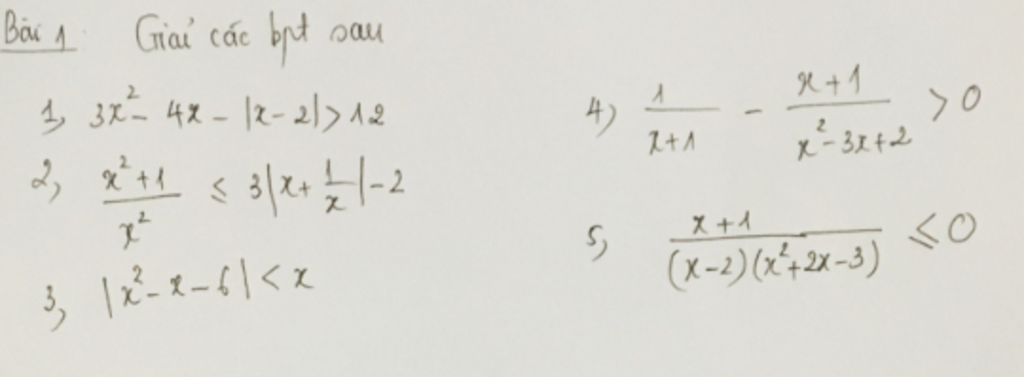 Bài 1: Giải các bpt sau
1, 3x² - 4x - |x - 2| > 12
2, \frac{x² + 1}{x²} ≤ 3|x + \frac{1}{x}| - 2
3, |x² - x - 6| < x
4) \frac{1}{x+1} - \frac{x+1}{x² - 3x + 2} > 0
5, \frac{x+1}{(x-2)(x²+2x-3)} ≤ 0